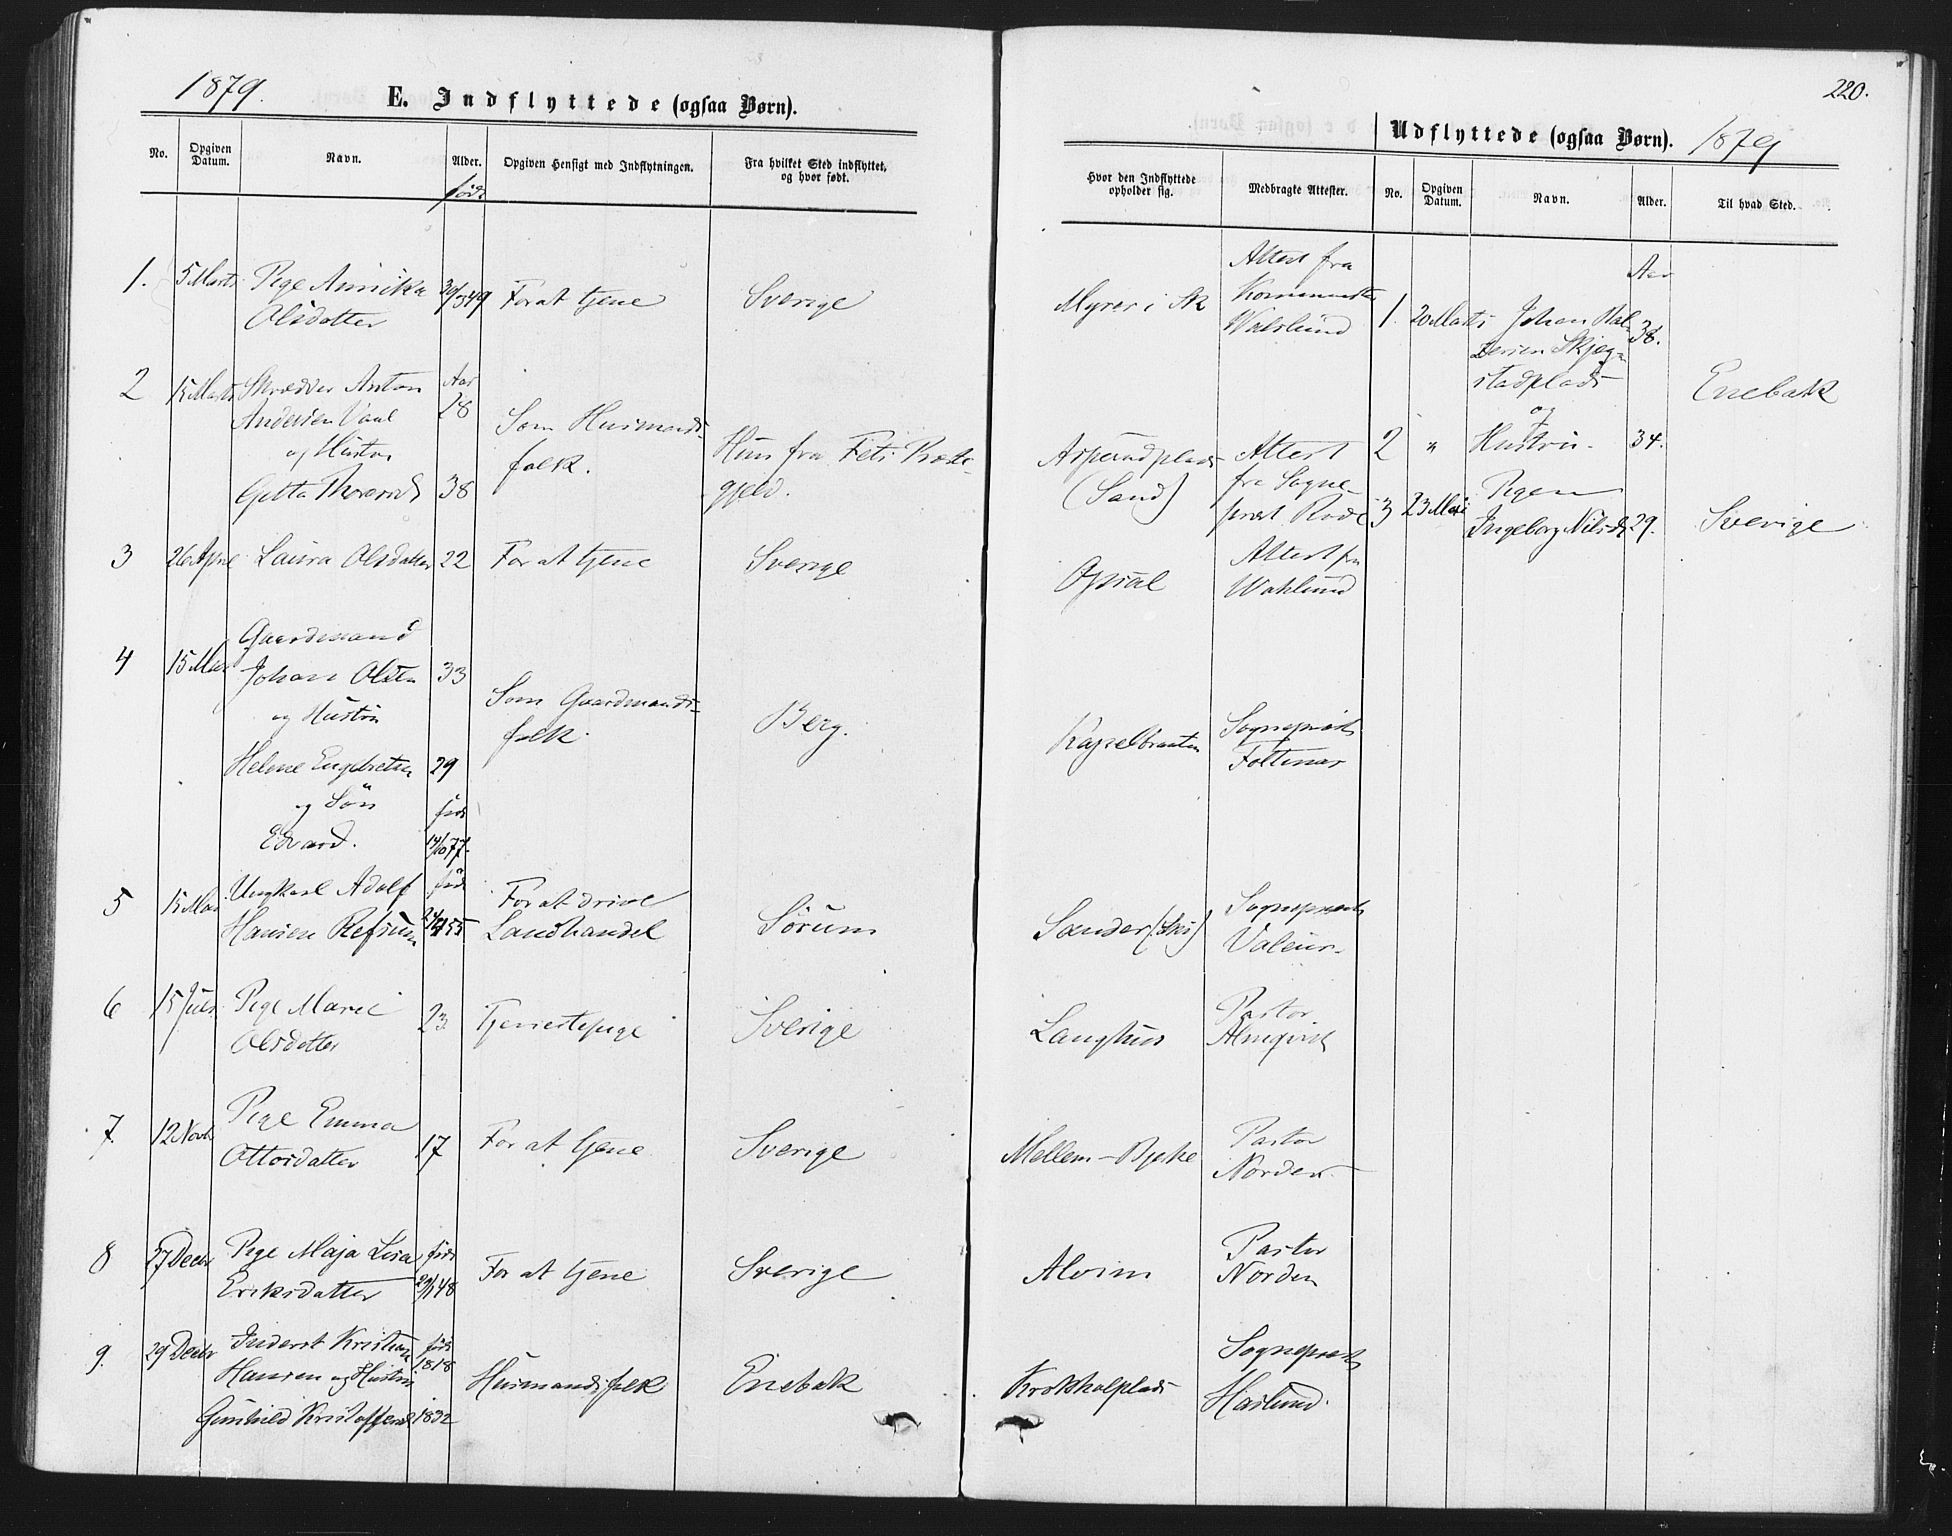 1879.
E. Indflyttede (ogsaa Børn).
No.
Opgiven
Datum.
Navn.
Alder.
Opgiven Hensigt med Indflytningen.
Fra hvilket Sted indflyttet,
og hvor født.
født
1.
5 Marts
Pige Annika
Olsdatter
For at tjene
Sverige
2
15 Marts
Skrædder Anton
Andersen
og Hustru
Aar
28
38
Som Husmands-
folk.
Hun fra Fets Præste-
gjeld.
3
26 April
Laura Olsdatter
22
For at tjene
Sverige
4
15 Mai
Gaardmand
Johan Olsen
33
og Hustru
Helene Engebretsen
29
og Søn
Edvard.
født
14/10 77.
Som Gaardmands-
folk.
Berg.
5
15 Mai
Ungkarl Adolf
Hansen Refsum
født
For at drive
Landhandel
Sørum
6
15 Juli
Pige Marie
Olsdatter
23
Tjenestepige
Sverige
7.
12 Novb
Pige Emma
Ottosdatter
17
For at tjene
Sverige
8
27 Decbr
Pige Maja Lisa
Eriksdatter
født
29/1 48
For at tjene
Sverige
9.
29 Decbr
Inderst Kristian
Hansen og Hustru
Gunhild Kristoffersd
født
1818
1832
Husmandsfolk
Enebak
220.
Udflyttede (ogsaa Børn).
1879
Hvor den Indflyttede
opholder sig.
Medbragte Attester.
No.
Opgiven
Datum.
Navn.
Alder.
Til hvad Sted.
Myrer i Sk
Attest fra
Walslund
(Sand)
Attest
fra Sogne-
præst Rode
Opsal
Attest fra
Wahlund
Kapelbraaten
Sognepræst
Sander (Ski)
Sognepræst
Valeur.
Langhus
Pastor
Almqvist
Mellem-Bjerke
Pastor
Norden
Alvim
Pastor
Norden
Krokholplads
Sognepræst
Haslund.
1.
20 Marts
Johan
Skjeg-
stadplads
og
Aar
38.
Enebak
2
"
Hustru.
34.
3
Pigen
Ingeborg Nilsd
29.
Sverige